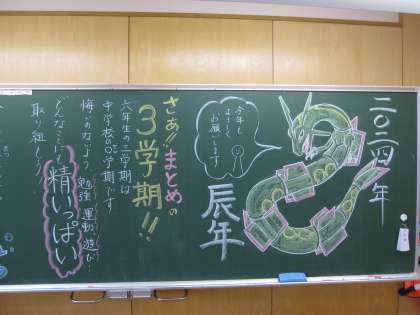 二〇二四年
辰年
今年も
よろしく
お願いします
さあ!!まとめの
3学期!!
六年生の三学期は
中学校の0学期です
悔いのないよう、勉強、運動、遊び…
どんなことにも精いっぱい
取り組もう!